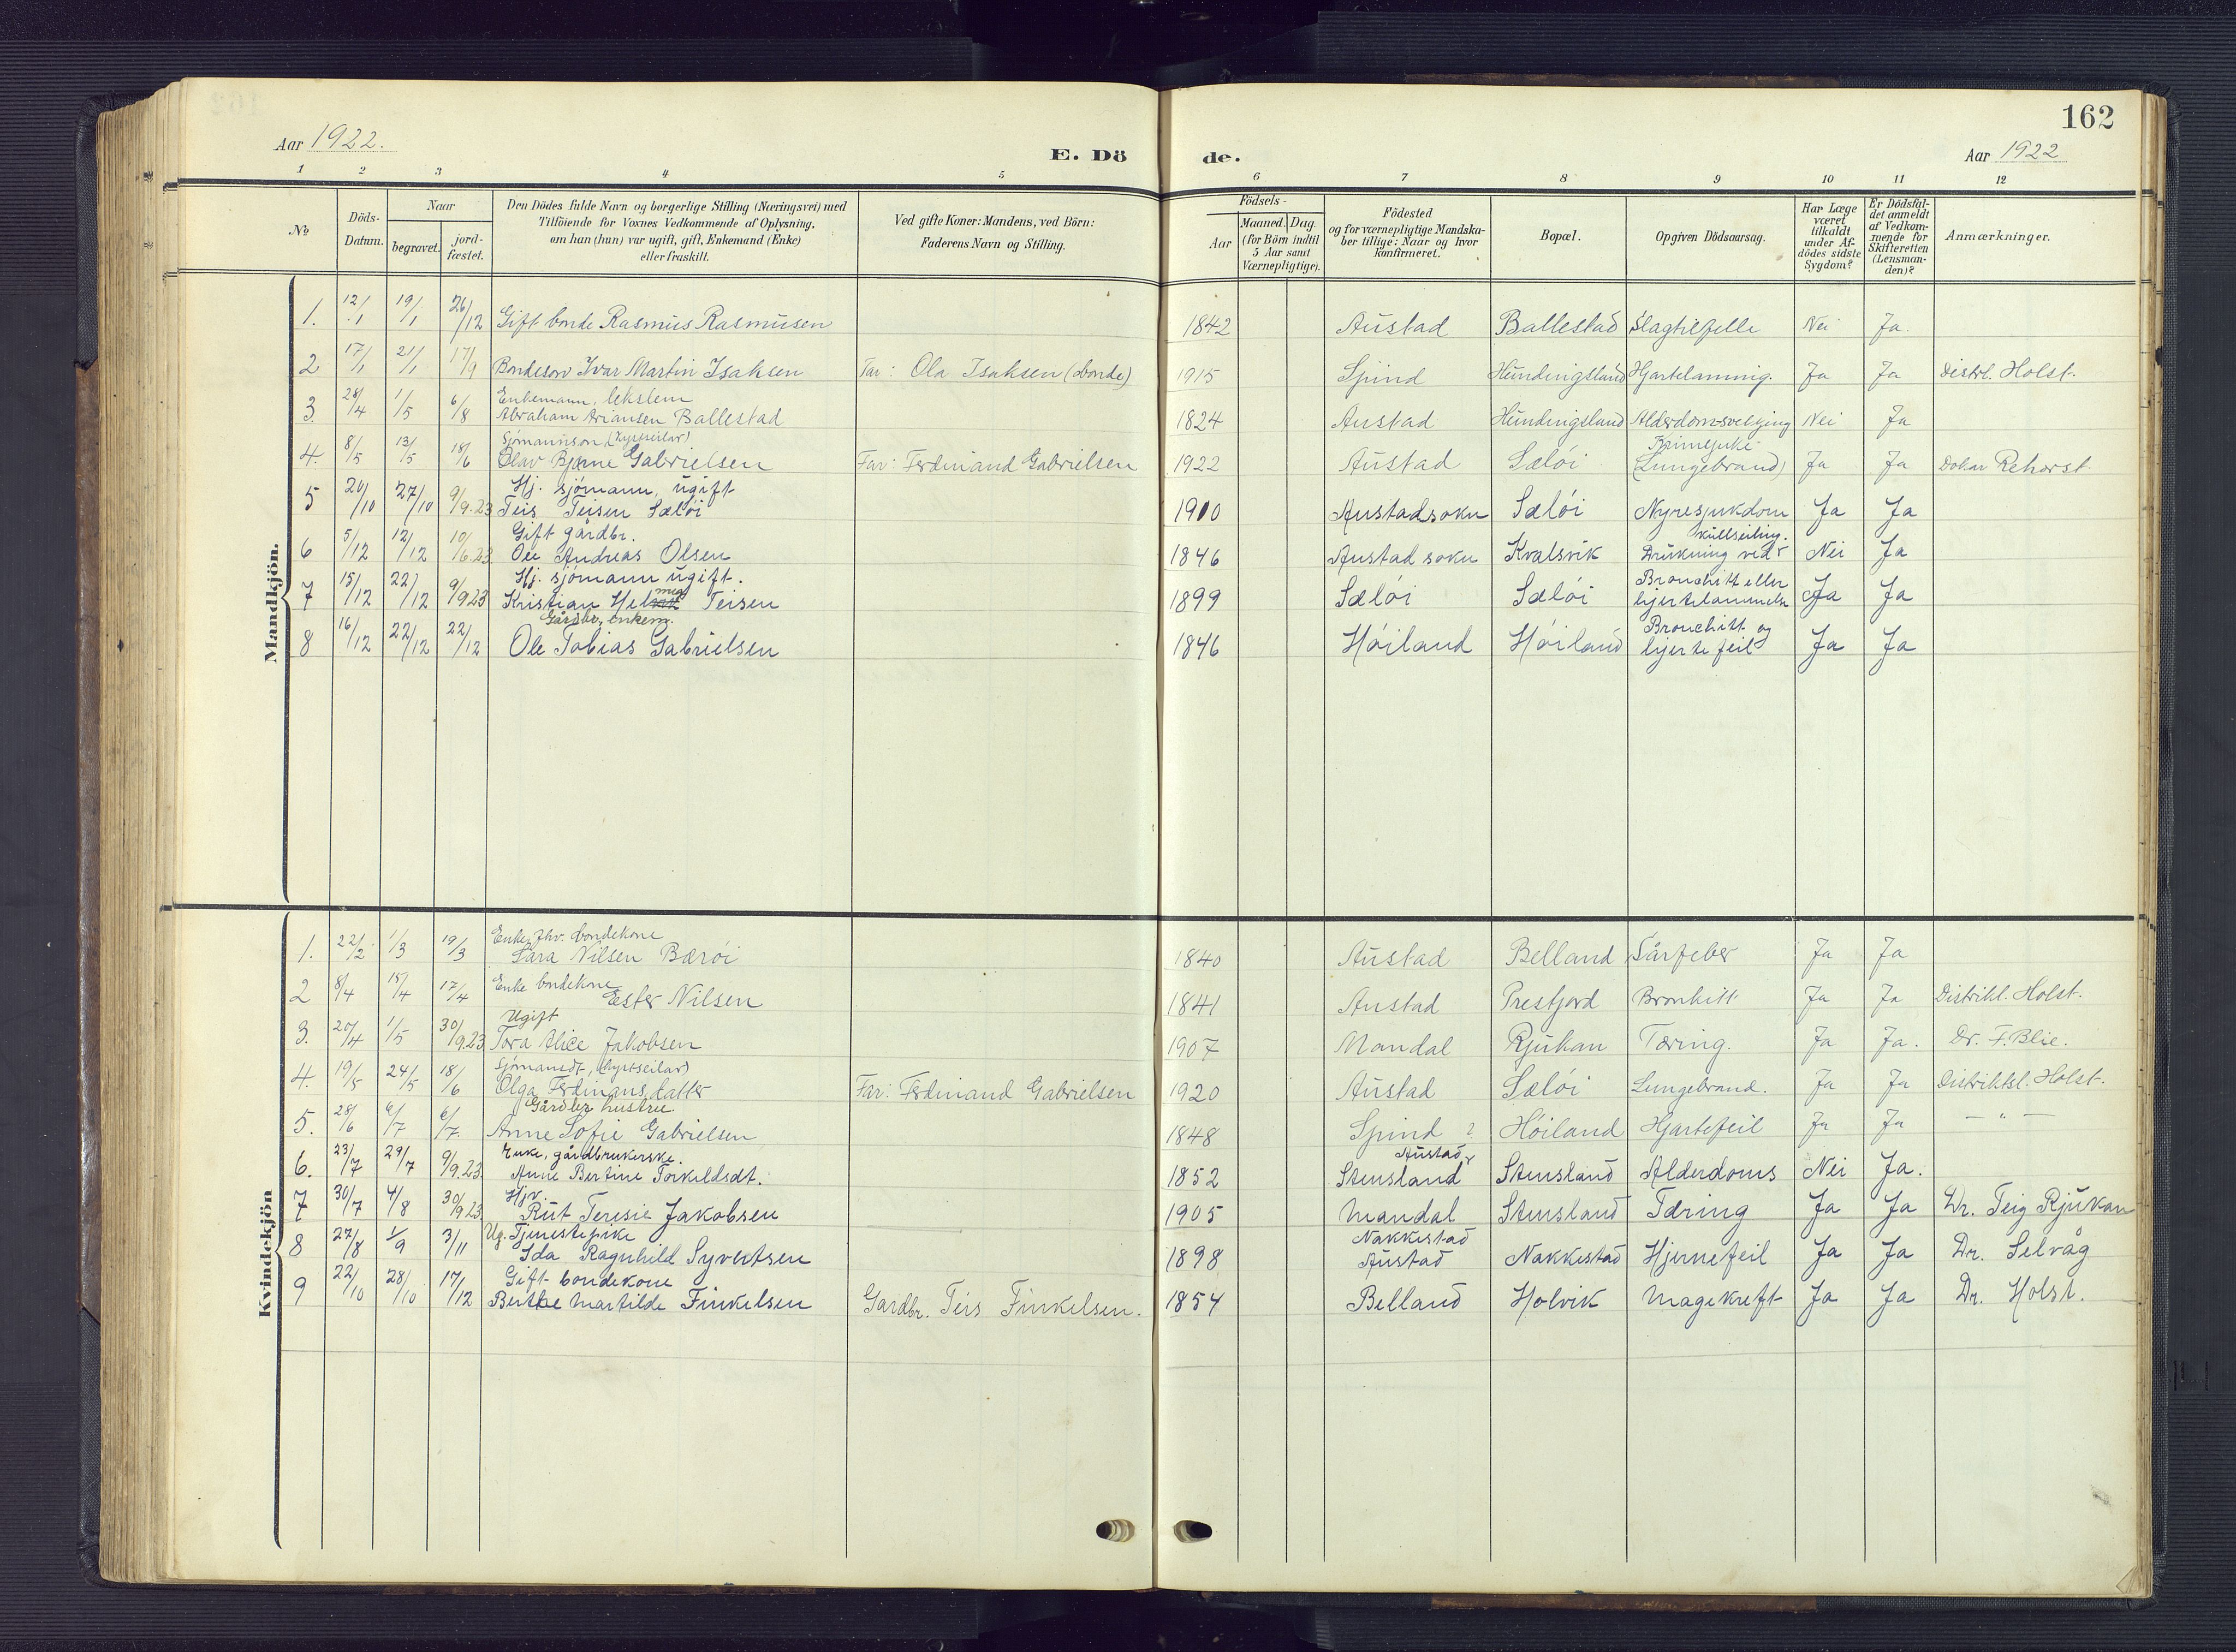 162
Aar 1922.
E. Dö de.
Aar 1922
1 2 3 4 5 6 7 8 9 10 11 12
№
Döds-Datum.
Naar
begravet.
jord-fæstet.
Den Dödes fulde Navn og borgerlige Stilling (Næringsvei) med
Tilföiende for Voxnes Vedkommende af Oplysning,
om han (hun) var ugift, gift, Enkemand (Enke)
eller fraskilt.
Ved gifte Koner: Mandens, ved Börn:
Faderens Navn og Stilling.
Födsels-
Aar
Maaned. Dag.
(for Börn indtil
5 Aar samt
Værnepligtige).
Födested
og for værnepligtige Mandska-
ber tillige: Naar og hvor
konfirmeret.
Bopæl.
Opgiven Dödsaarsag.
Har Læge
været
tilkaldt
under Af-
dödes sidste
Sygdom?
Er Dödsfal-
det anmeldt
af Vedkom-
mende for
Skifteretten
(Lensman-
den)?
Anmærkninger.
Mandkjön.
1. 12/1 19/1 26/12 Gift bonde Rasmus Rasmusen 1842 Austad Ballestad Slagtilfelle Nei Ja.
2 17/1 21/1 17/9 Bondeson Ivar Martin Isaksen Far: Ola Isaksen (bonde) 1915 Spind Hundingsland Hjartelamnig. Ja Ja Distrl. Holst.
Enkemann, lekslem
3. 28/4 1/5 6/8 Abraham Ariansen Ballestad 1824 Austad Hundingsland Nei Ja
Sjömannson, (kystseilar)
4. 8/5 13/5 18/6 Olav Bjarne Gabrielsen Far: Ferdinand Gabrielsen 1922 Austad Sælöi (Lungebrand) Ja Ja Doktar Rehorst.
Hj. sjömann, ugift
5 20/10 27/10 9/9.23 Teis Teisen Sælöi 1910 Austadsokn Sælöi Nyresjukdom Ja Ja
Gift gårdbr. kullseiling.
6 5/12 12/12 10/6.23 Ole Andreas Olsen 1846 Austad sokn Kvalsvik Drukning ved Nei Ja
Hj. sjömann ugift. Bronchitt eller
7 15/12 22/12 9/9 23 Kristian Helmeg Teisen 1899 Sælöi Sælöi hjertelammelse Ja Ja
Gårdbr, enkem. Bronchitt og
8 16/12 22/12 22/12 Ole Tobias Gabrielsen 1846 Höiland Höiland hjertefeil Ja Ja
Kvindekjön
Enke, fhv. bondekone
1. 22/2 1/3 19/3 Sara Nilsen Bæröi 1840 Austad Belland Sårfeber Ja Ja
Enke bondekone
2 8/4 15/4 17/4 Ester Nilsen 1841 Austad Prestjord Bronkitt Ja Ja Distriktl. Holst.
Ugift
3. 20/4 1/5 30/9.23 Tora Alice Jakobsen 1907 Mandal Rjukan Tæring. Ja Ja. Dr. F. Blie.
Sjömansdt, (kystseilar)
4. 19/5 24/5 18/6 Olga Ferdinansdatter Far: Ferdinand Gabrielsen 1920 Austad Sælöi Lungebrand. Ja Ja Distriktsl. Holst.
Gårdbr hustru
5. 28/6 6/7 6/7. Anne Sofie Gabrielsen 1848 Spind ? Höiland Hjartefeil Ja Ja — " —
Enke, gårdbrukerske. Austad
6. 23/7 29/7 9/9.23. Anne Bertine Torkeldsdt. 1852 Stensland Stensland Alderdoms Nei Ja.
Hjv.
7 30/7 4/8 30/9 23 Rut Teresie Jakobsen 1905 Mandal Stensland Tæring Ja Ja Dr. Teig Rjukan
Ug. Tjenestepike Nakkestad
8 27/8 1/9 3/11 Ida Ragnhild Syvertsen 1898 Austad Nakkestad Hjernefeil Ja Ja Dr. Selvåg
Gift bondekone
9 22/10 28/10 17/12 Berthe Martilde Finkelsen Gardbr. Teis Finkelsen. 1854 Belland Holvik Magekreft Ja Ja Dr. Holst.